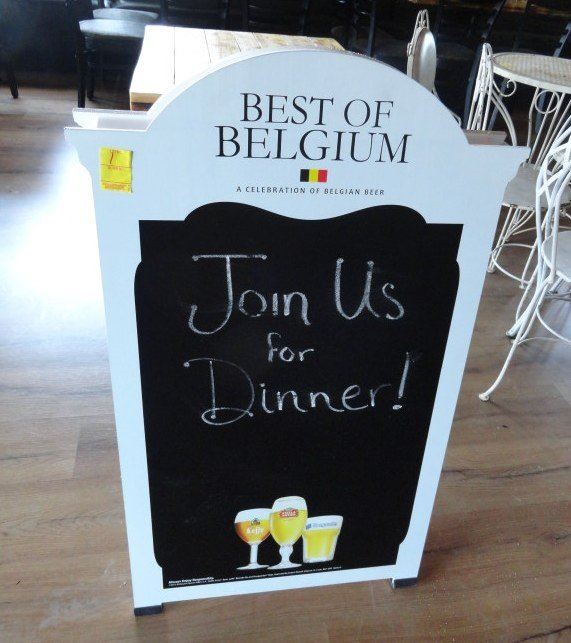 BEST OF
BELGIUM
A CELEBRATION OF BELGIAN BEER
Join Us
for
Dinner!
Leffe
STELLA
ARTOIS
Hoegaarden
Always Enjoy Responsibly.